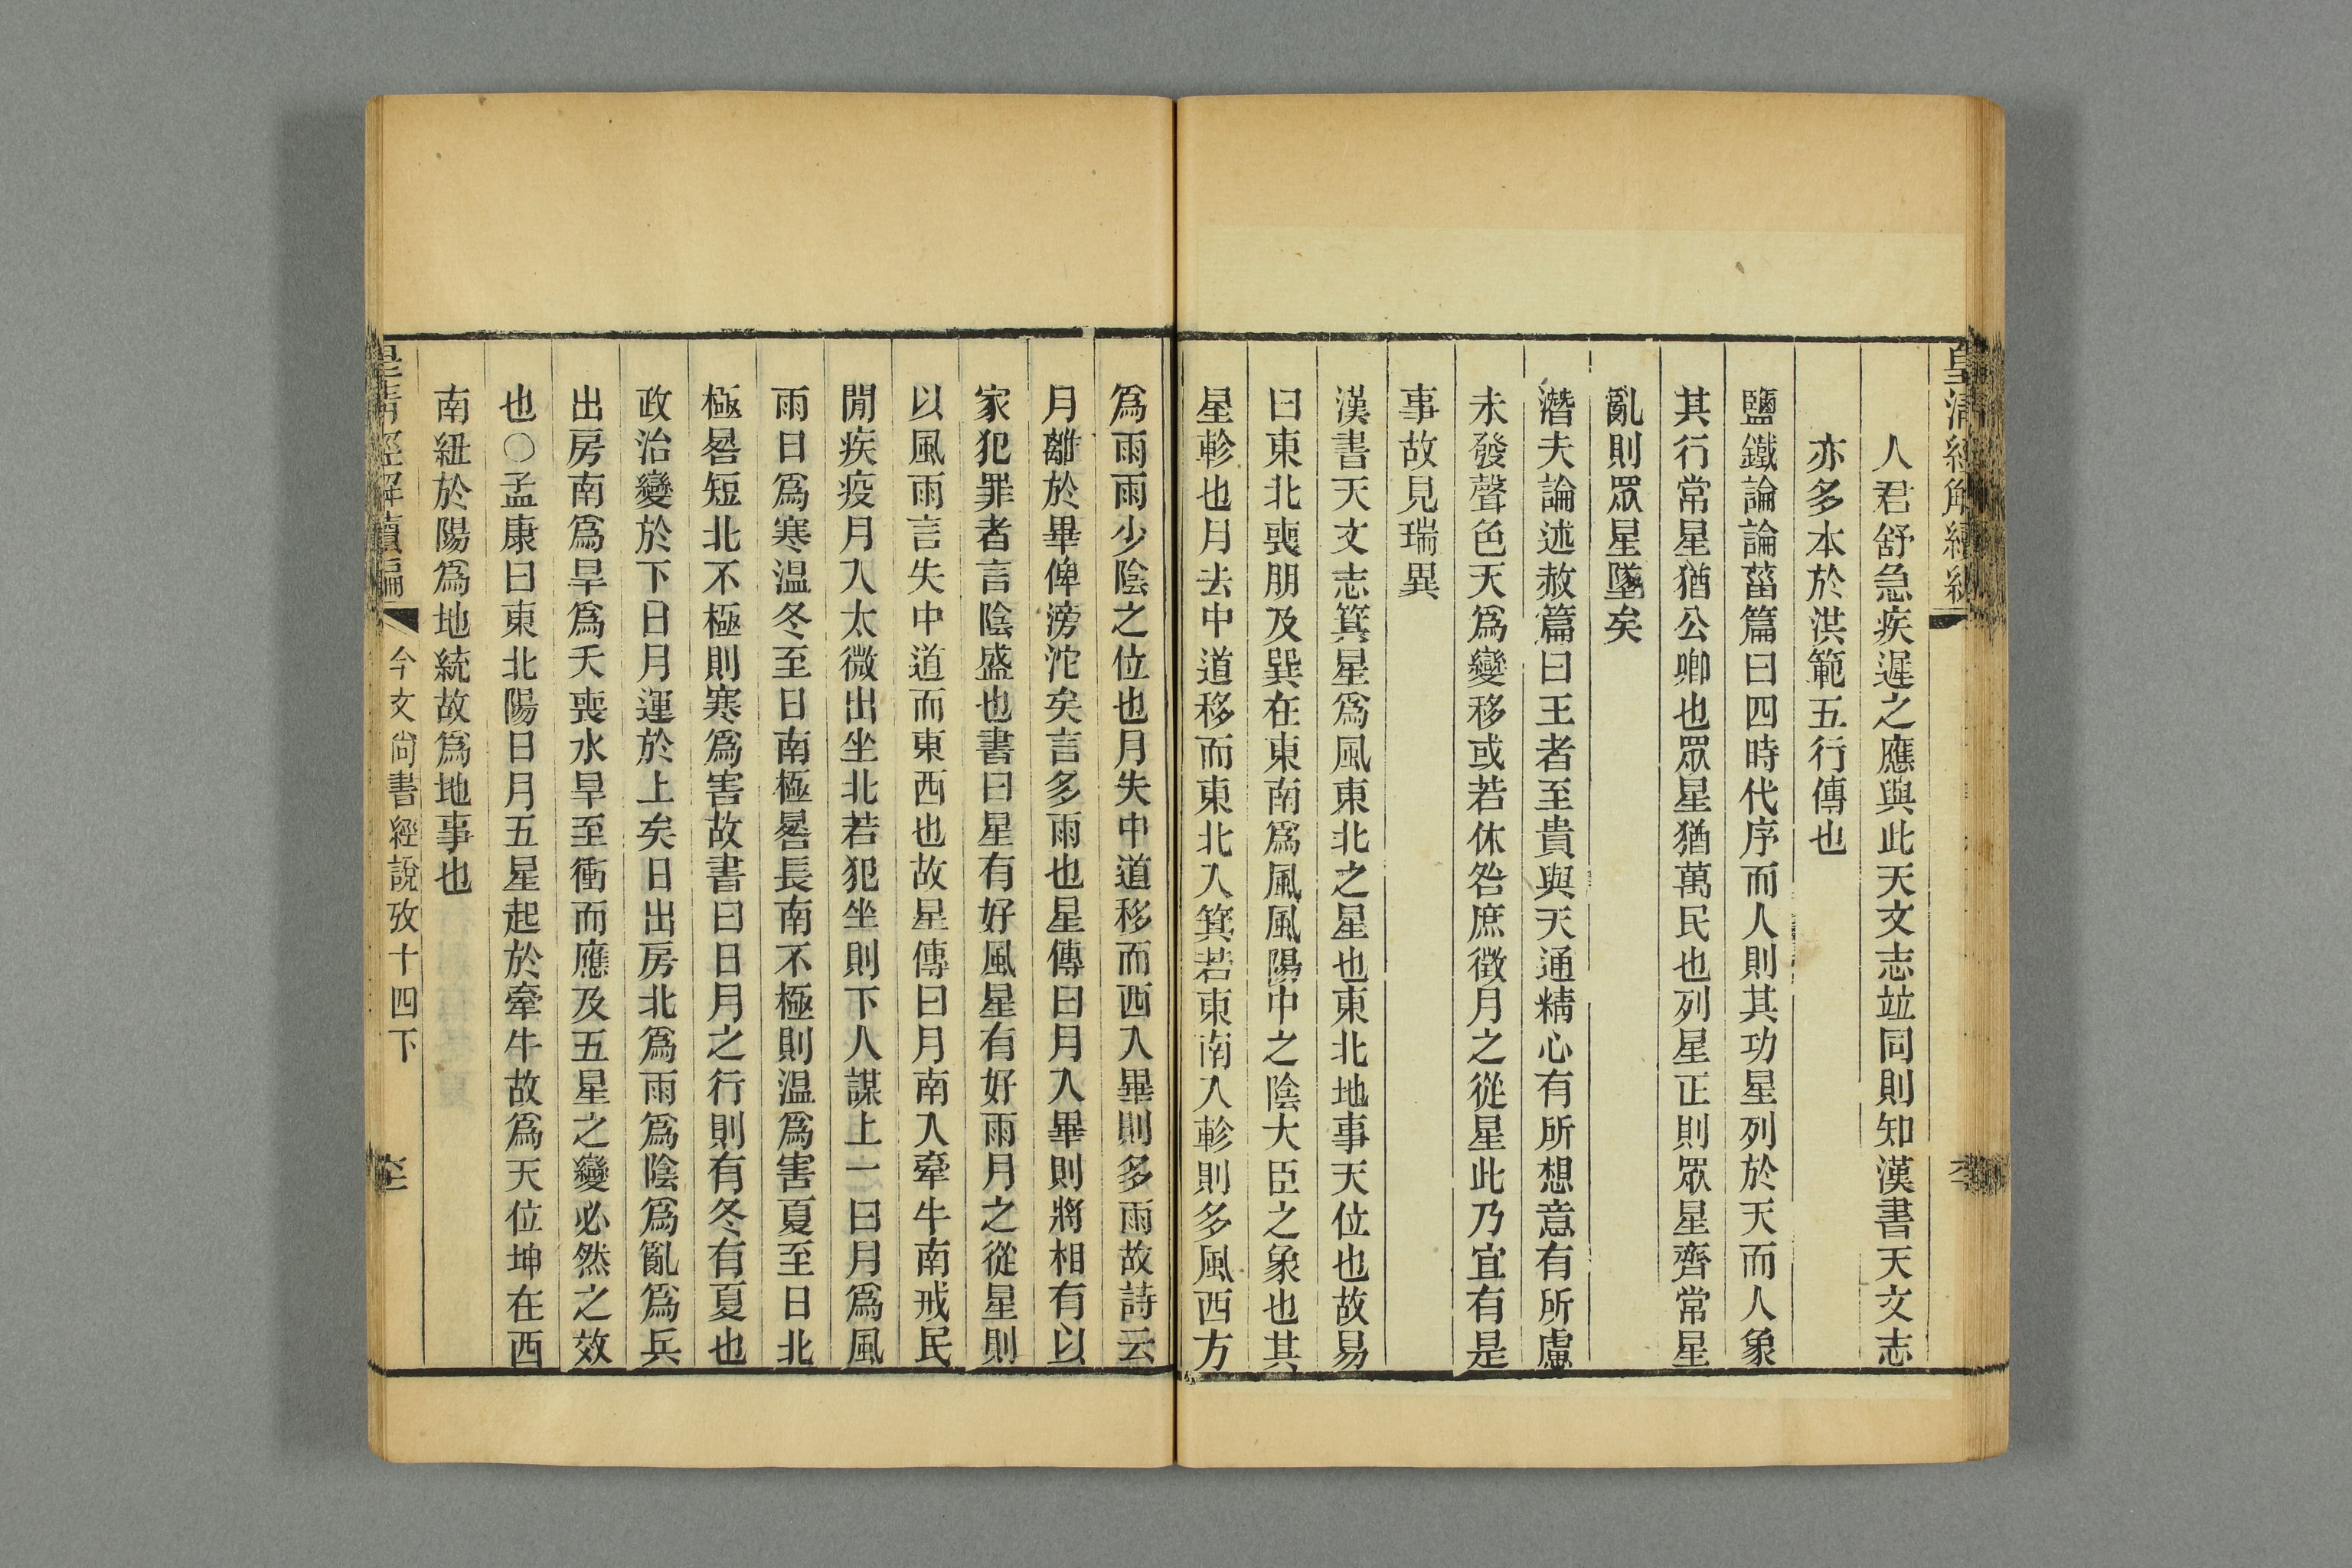 皇清經解續編
人君舒急疾遲之應與此天文志竝同則知漢書天文志
亦多本於洪範五行傳也
鹽鐵論論菑篇曰四時代序而人則其功星列於天而人象
其行常星猶公卿也眾星猶萬民也列星正則眾星齊常星
亂則眾星墜矣
潛夫論述赦篇曰王者至貴與天通精心有所想意有所慮
未發聲色天為變移或若休咎庶徵月之從星此乃宜有是
事故見瑞異
漢書天文志箕星為風東北之星也東北地事天位也故易
曰東北喪朋及巽在東南為風風陽中之陰大臣之象也其
星軫也月去中道移而東北入箕若東南入軫則多風西方
為雨雨少陰之位也月失中道移而西入畢則多雨故詩云
月離於畢俾滂沱矣言多雨也星傳曰月入畢則將相有以
家犯罪者言陰盛也書曰星有好風星有好雨月之從星則
以風雨言失中道而東西也故星傳曰月南入牽牛南戒民
閒疾疫月入太微出坐北若犯坐則下人謀上一曰月為風
雨日為寒温冬至日南極晷長南不極則温為害夏至日北
極晷短北不極則寒為害故書曰日月之行則有冬有夏也
政治變於下日月運於上矣日出房北為雨為陰為亂為兵
出房南為旱為夭喪水旱至衝而應及五星之變必然之效
也○孟康曰東北陽日月五星起於牽牛故為天位坤在西
南紐於陽為地統故為地事也
皇清經解續編 今文尚書經說攷十四下